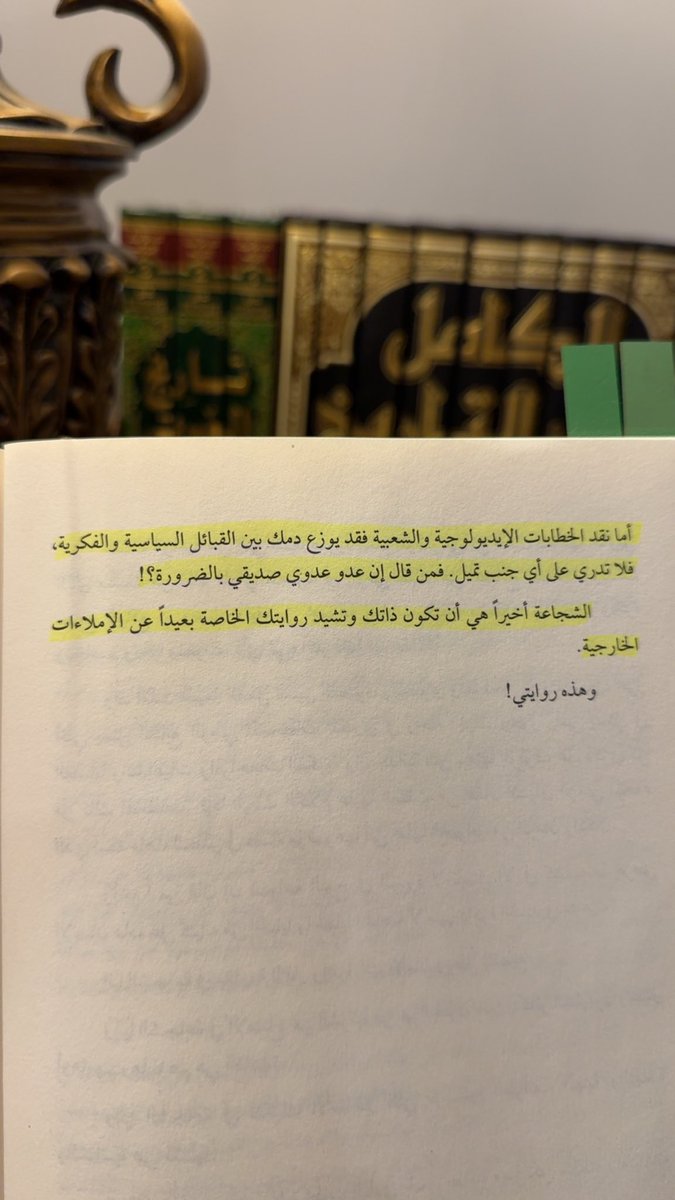 تاريخ
الكامل
في التاريخ
أما نقد الخطابات الإيديولوجية والشعبية فقد يوزع دمك بين القبائل السياسية والفكرية،
فلا تدري على أي جنب تميل. فمن قال إن عدو عدوي صديقي بالضرورة؟!
الشجاعة أخيراً هي أن تكون ذاتك وتشيد روايتك الخاصة بعيداً عن الإملاءات
الخارجية.
وهذه روايتي!